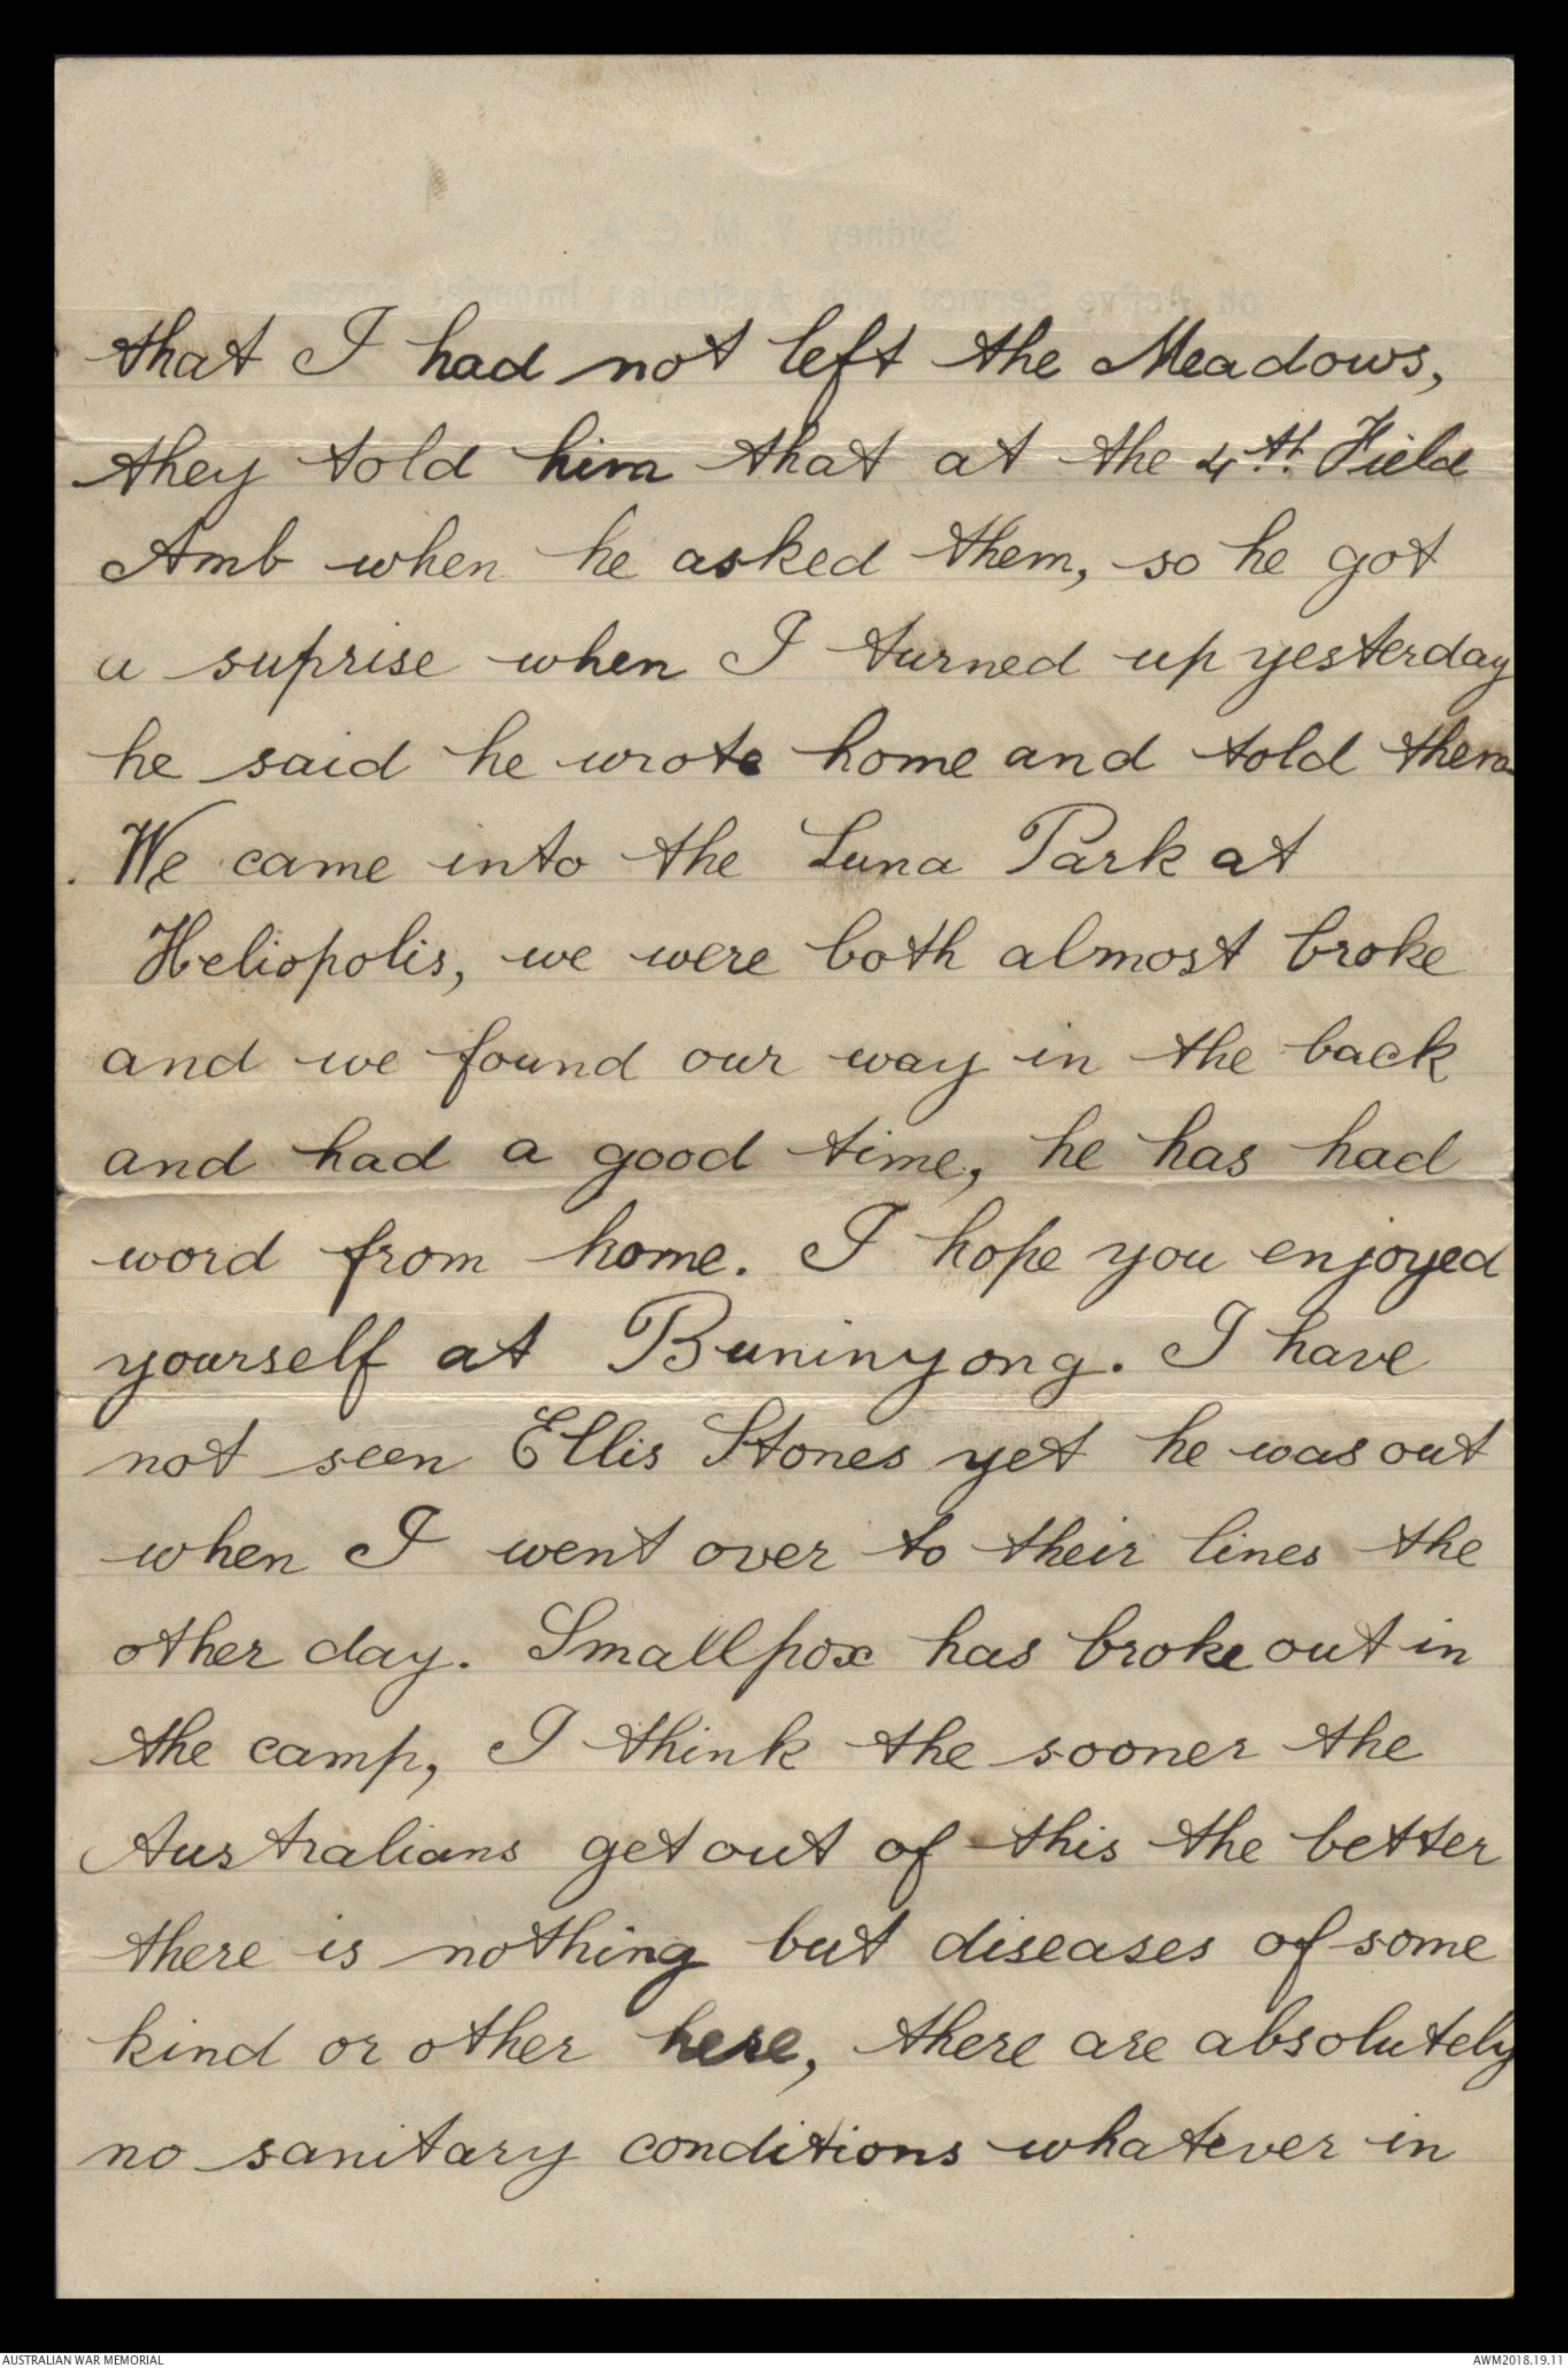 that I had not left the Meadows,
they told him that at the 4th. Field
Amb when he asked them, so he got
a suprise when I turned up yesterday
he said he wrote home and told them
. We came into the Luna Park at
Heliopolis, we were both almost broke
and we found our way in the back
and had a good time, he has had
word from home. I hope you enjoyed
yourself at Buninyong. I have
not seen Ellis Stones yet he was out
when I went over to their lines the
other day. Smallpox has broke out in
the camp, I think the sooner the
Australians get out of this the better
there is nothing but diseases of some
kind or other here, there are absolutely
no sanitary conditions whatever in
AUSTRALIAN WAR MEMORIAL
AWM2018.19.11